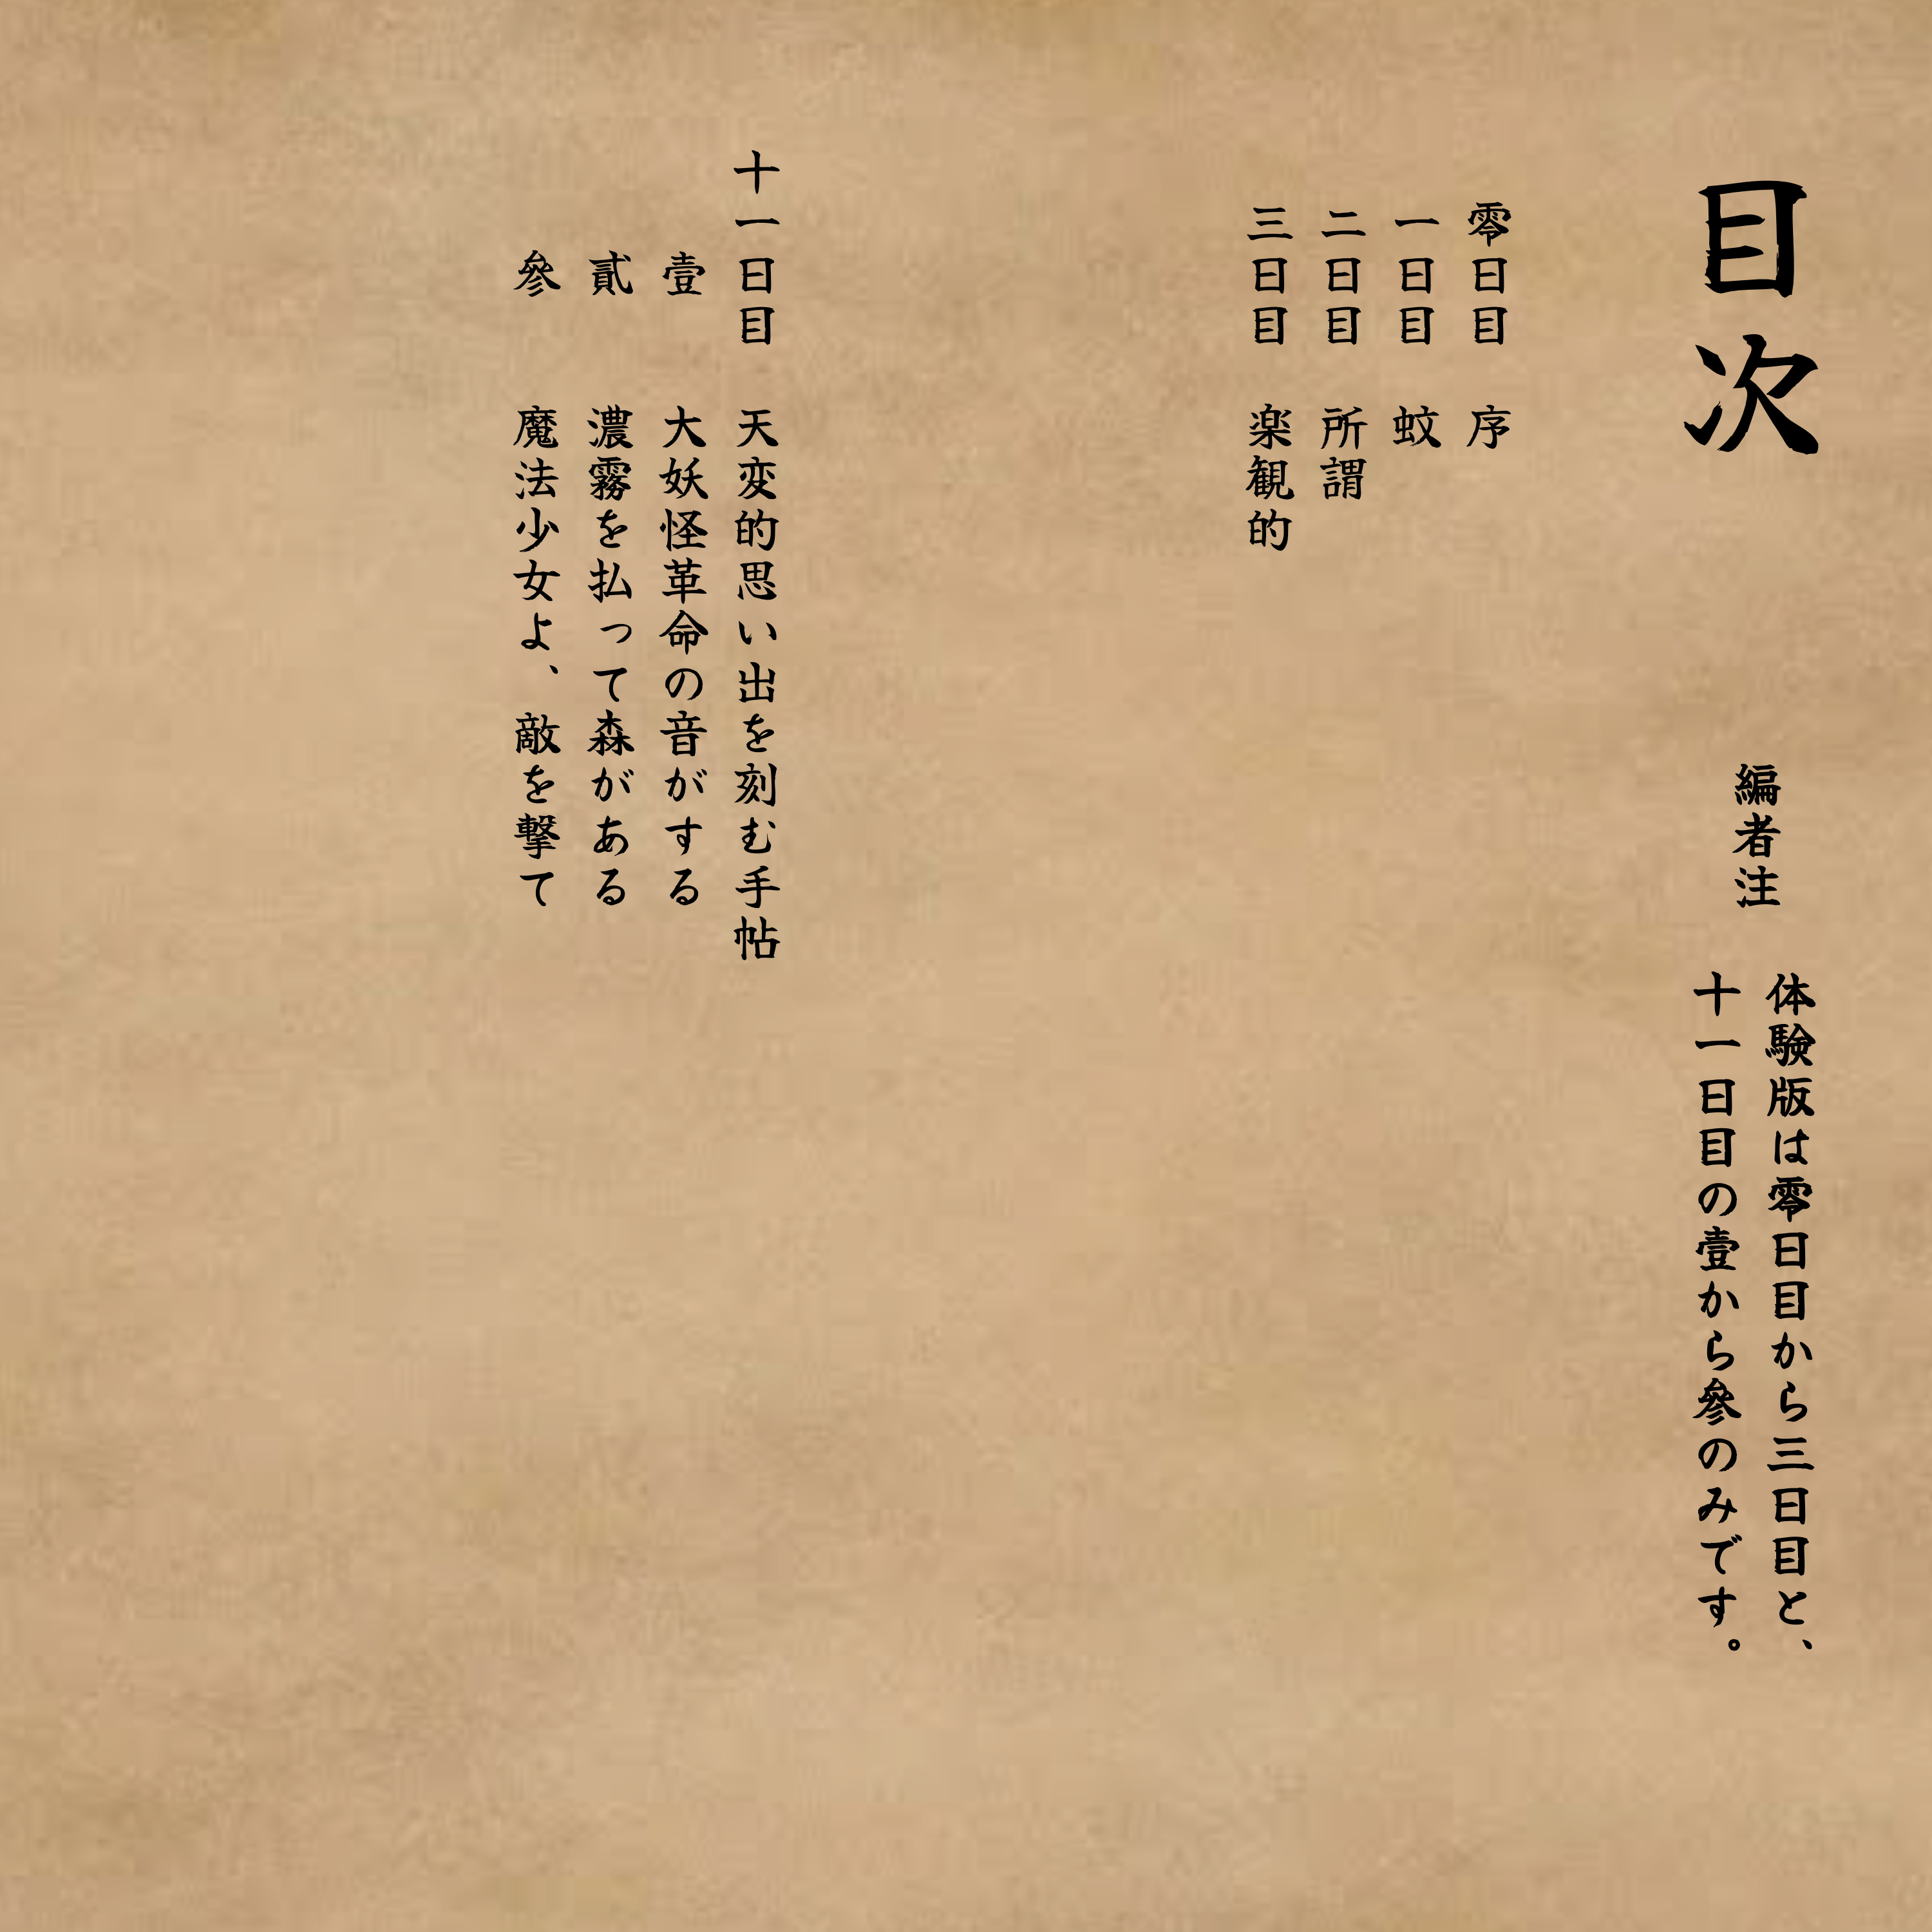 目次
編者注
体験版は零日目から三日目と、
十一日目の壹から參のみです。
零日目　序
一日目　蚊
二日目　所謂
三日目　楽観的
十一日目　天変的思い出を刻む手帖
壹　大妖怪革命の音がする
貳　濃霧を払って森がある
參　魔法少女よ、敵を撃て